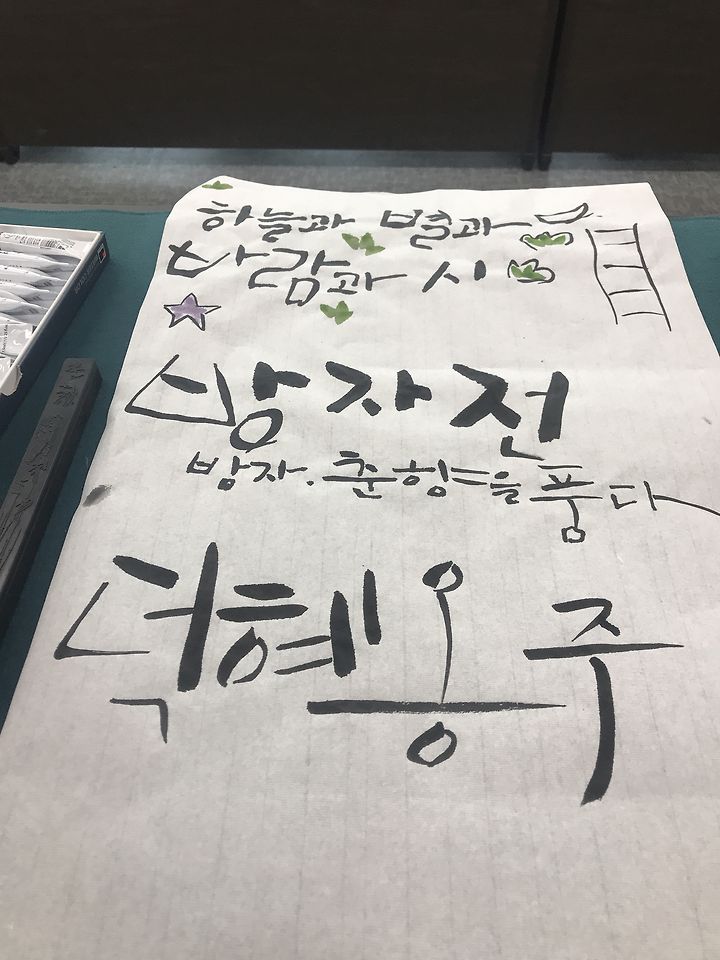 하늘과 별과
바람과 시
방자전
방자. 춘향을 품다
덕혜옹주